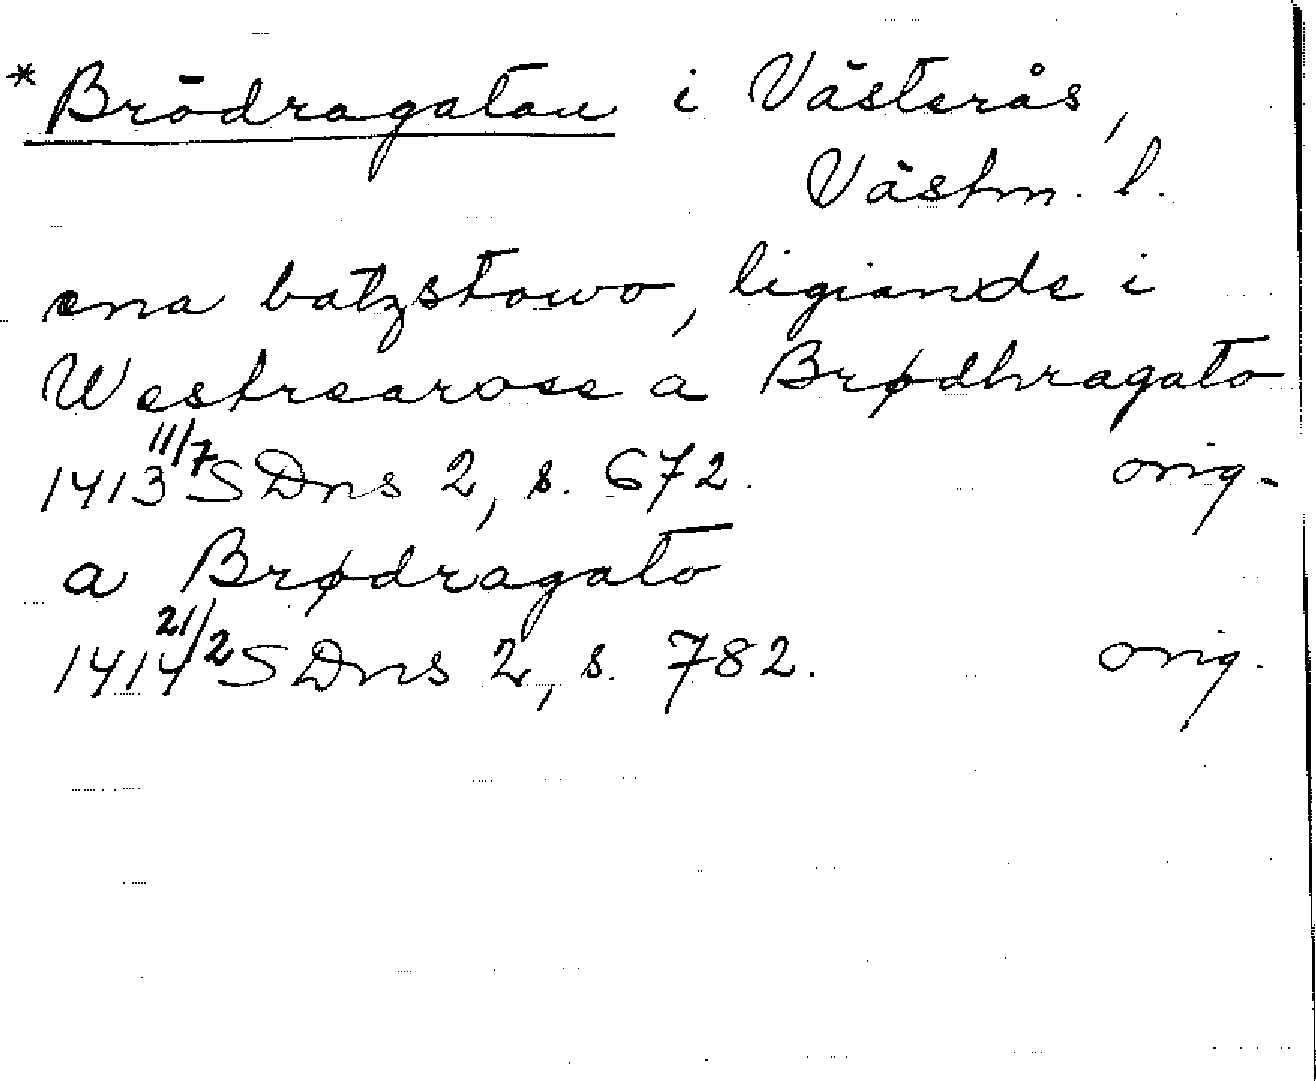 *Brödragatan i Västerås,
Västm. l.
ena batzstowo, ligiande i
Westraarose a Brødhragato
1413 11/7 SDns 2, s. 672. orig.
a Brødragato
1414 21/2 SDns 2, s. 782. orig.